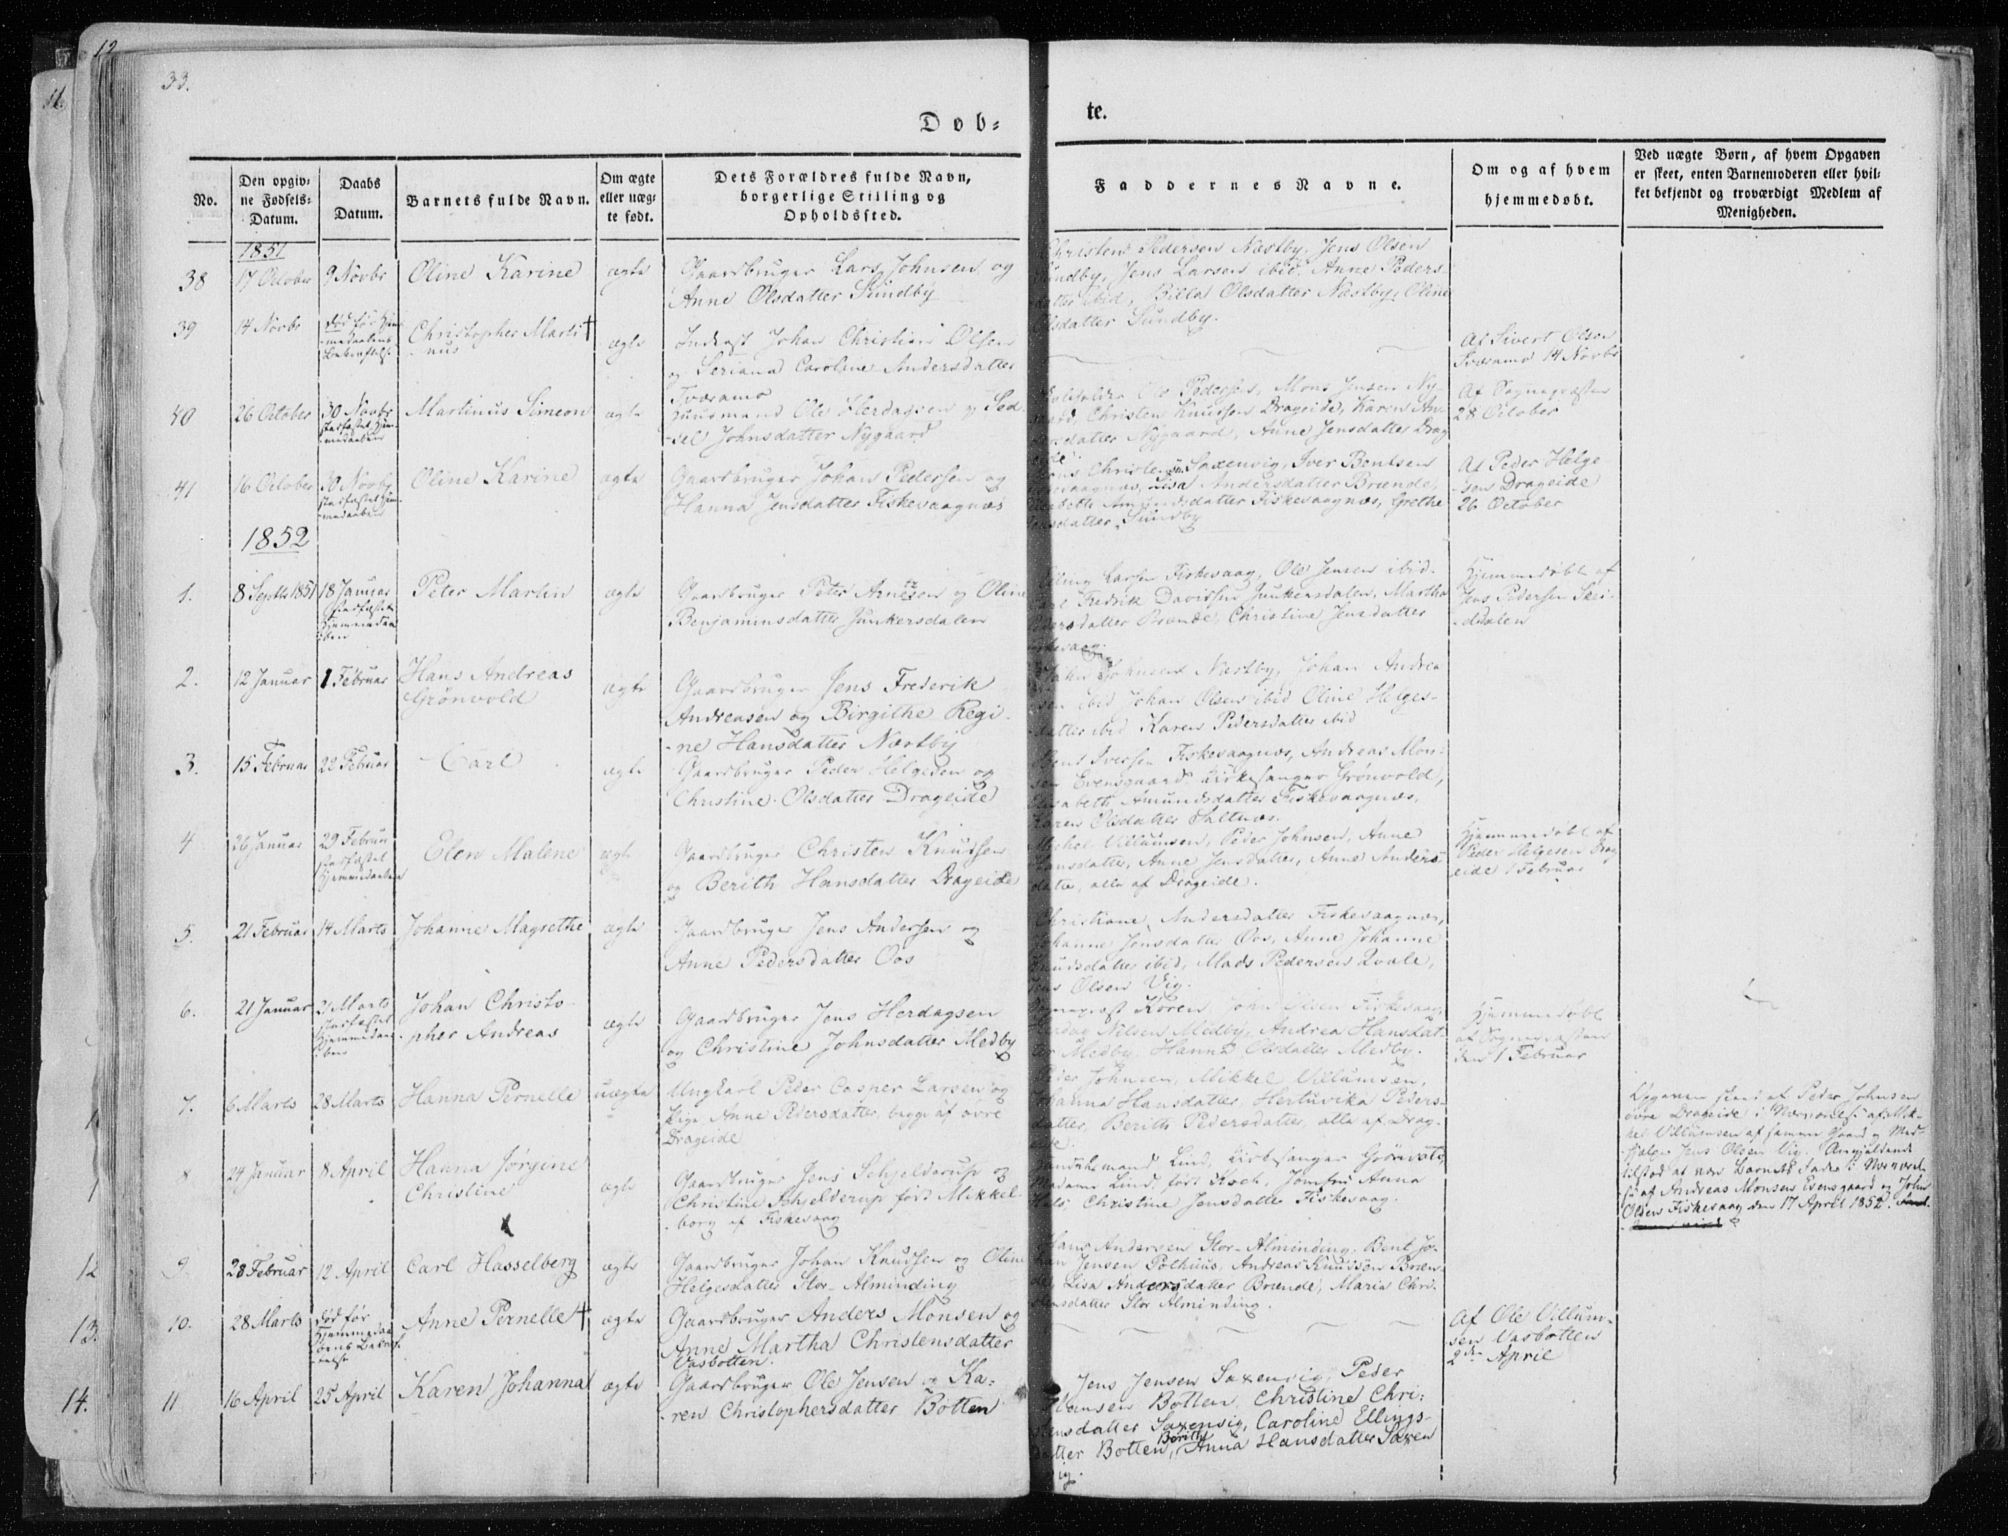 33.
Døb=
te.
No.
Den opgiv=
ne Fødsels=
Datum.
Daabs
Datum.
Barnets fulde Navn.
Om ægte
eller uæg=
te født.
Dets Forældres fulde Navn,
borgerlige Stilling og
Opholdssted.
Faddernes Navne.
Om og af hvem
hjemmedøbt.
Ved uægte Børn, af hvem Opgaven
er skeet, enten Barnemoderen eller hvil=
ket bekjendt og troværdigt Medlem af
Menigheden.
1851
38
17 October
9 Novbr
Oline Karine
ægte
Gaardbruger Lars Johnsen og
Anne Olsdatter Sundby
Christen Pedersen Næstby, Jens Olsen
Sundby, Jens Larsen ibid, Anne Peders-
datter ibid, Olsdatter Næstby, Oline
Olsdatter Sundby.
39
14 Novbr
død før Hjem-
medaabens
Bekræftelse
Christopher Marti †
nus
ægte
Inderst Johan Christian Olsen
og Seriana Caroline Andersdatter
Tværamo
Af Sivert Olsen
Tværamo 14 Novbr
40
26 October
30 Novbr
stadfæstet Hjem-
medaaben
Martinus Simeon
ægte
Huusmand Ole Herdagsen og
-sel Johnsdatter Nygaard
Ole Pedersen, Mons Jensen Ny-
gaard, Christen Knudsen Drageide, Karen
datter Nygaard, Anne Jensdatter Drag
eide.
Af Sognepræsten
28 October
41
16 October
30 Novbr
stadfæstet Hjem-
medaaben
Oline Karine
ægte
Gaardbruger Johan Pedersen og
Hanna Jensdatter Fiskevaagnæs
Christensen Saxenvig, Iver Bentsen
Fiskevaagnæs, Lisa Andersdatter Brænde,
Elisabeth Amundsdatter Fiskevaagnæs, Grethe
Jensdatter Sundby
Af Peder Helge
-sen Drageide
26 October
1852
1.
8 Septbr 1851
18 Januar
stadfæstet
Hjemmedaa
ben
Peter Martin
ægte
Gaardbruger Peter Arntzen og Oline
Benjaminsdatter Junkersdalen
Elling Larsen Fiskevaag, Ole Jensen ibid.
Fredrik Davidsen Junkersdalen, Martha
Pedersdatter Brænde, Christine Jensdatter
Fiskevaag.
Hjemmedøbt af
Jens Pedersen Skei-
-dalen
2.
12 Januar
1 Februar
Hans Andreas
Grønvold
ægte
Gaardbruger Jens Frederik
Andreasen og Birgithe Regi-
-ne Hansdatter Næstby
Johnsen Næstby, Johan Andrea
sen ibid Johan Olsen ibid Oline Helges-
datter ibid Karen Pedersdatter ibid
3.
15 Februar
22 Februar
Carl
ægte
Gaardbruger Peder Helgesen og
Christine Olsdatter Drageide
Bent Iversen Fiskevaagnæs, Andreas Mon-
sen Evensgaard Kirkesanger Grønvold,
Elisabeth Amundsdatter Fiskevaagnæs,
Karen Olsdatter Saltnæs.
4
26 Januar
29 Februar
stadfæstet
Hjemmedaaben
Elen Malene
ægte
Gaardbruger Christen Knudsen
og Berith Hansdatter Drageide
Mickel Villumsen, Peder Johnsen, Anne
Hansdatter, Anne Jensdatter, Anne Anders-
datter, alle af Drageide.
Hjemmedøbt af
Peder Helgesen Drag
eide 1 Februar
5.
21 Februar
14 Marts
Johanne Magrethe
ægte
Gaardbruger Jens Andersen og
Anne Pedersdatter Oos
Christiane Andersdatter Fiskevaagnæs,
Johanne Jonsdatter Oos, Anne Johanne
Knudsdatter ibid, Mads Pedersen Qvale,
Jens Olsen Vig.
6.
21 Januar
21 Marts
stadfæstet
Hjemmedaa
ben
Johan Christo-
-pher Andreas
ægte
Gaardbruger Jens Herdagsen
og Christine Johnsdatter Medby
Sognepræst Koren John Olsen Fiskevaag,
Herdag Nilsen Medby, Andrea Hansdat-
ter Medby Hanna Olsdatter Medby.
Hjemmedøbt
af Sognepræsten
den 1 Februar
7.
6 Marts
28 Marts
Hanna Pernelle
uægte
Ungkarl Peder Casper Larsen og
Pige Anne Pedersdatter, begge af øvre
Drageide
Peder Johnsen, Mikkel Villumsen,
Johanna Hansdatter, Hertuvika Peders-
datter, Berith Pedersdatter, alle af Drag-
eide.
Opgaven skeed af Peder Johnsen
øvre Drageide i Nærværelse af Mik-
kel Villumsen af samme Gaard og Med-
hjælper Jens Olsen Vig. Angjældende
tilstod at være Barnets Fader i Nærværel-
se af Andreas Monsen Evensgaard og John
Olsen Fiskevaag den 17 April 1852.
8
24 Januar
8 April
Hanna Jørgine
Christine
ægte
Gaardbruger Jens Schjelderup og
Christine Schjelderup født Mikkel-
borg af Fiskevaag
Lind, Kirkesanger Grønvold,
Madame Lind født Koch, Jomfru Anna
Christine Jensdatter Fiskevaag.
9.
28 Februar
12 April
Carl Hasselberg
ægte
Gaardbruger Johan Knudsen og Oline
Helgesdatter Stor-Alminding
Hans Andersen Stor-Alminding, Bent Jo-
han Jensen Pothuus, Andreas Knudsen Bræn-
de, Lisa Andersdatter Brænde, Maria Chri-
stensdatter Stor Alminding.
10.
28 Marts
død før
Hjemmedaa
bens Bekræf
telse
Anne Pernelle †
ægte
Gaardbruger Anders Monsen og
Anne Martha Christensdatter
Vasbotten.
Af Ole Villum-
sen Vasbotten
2den April
11
16 April
25 April
Karen Johanna
ægte
Gaardbruger Ole Jensen og Ka=
-ren Christophersdatter Botten
Jens Jensen Saxenvig, Peder
Hansen Botten, Christine Chri=
stensdatter Saxenvig, Caroline Ellings-
datter Botten, Berith Anna Hansdatter Saxen
vig.
12
13.
14.